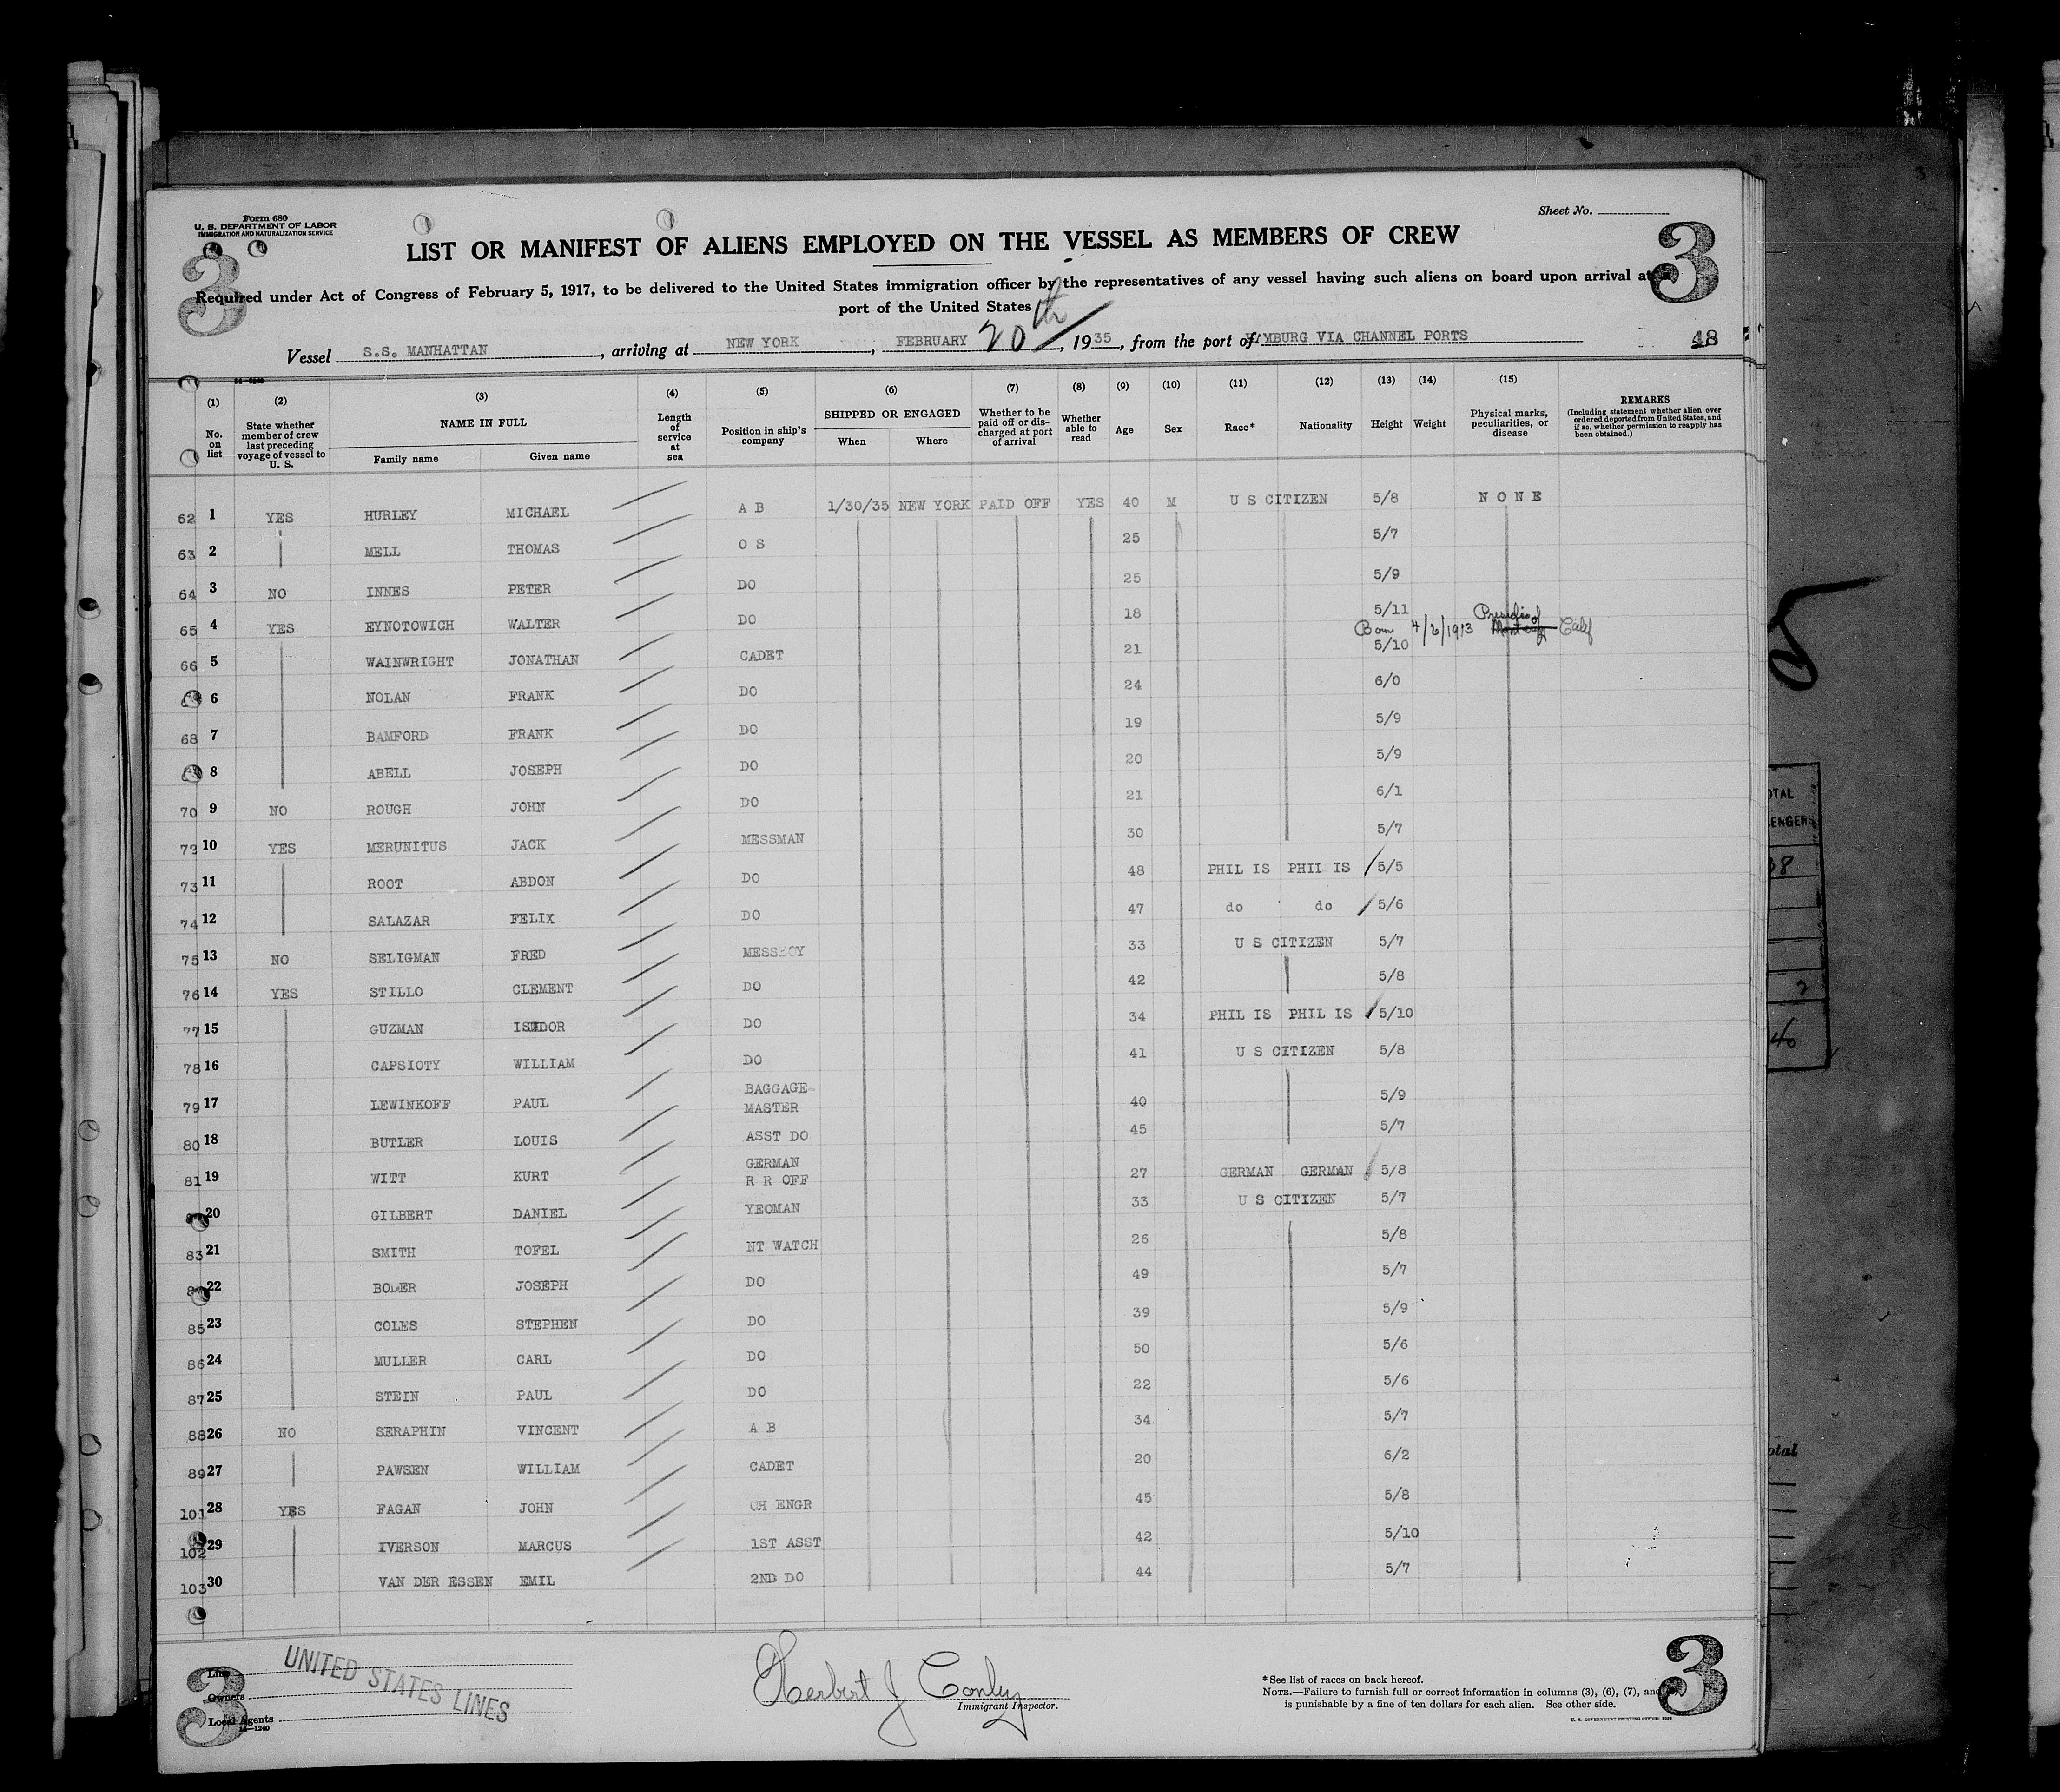 Form 680
U. S. DEPARTMENT OF LABOR
IMMIGRATION AND NATURALIZATION SERVICE
Sheet No.
3 3
LIST OR MANIFEST OF ALIENS EMPLOYED ON THE VESSEL AS MEMBERS OF CREW
Required under Act of Congress of February 5, 1917, to be delivered to the United States immigration officer by the representatives of any vessel having such aliens on board upon arrival at
port of the United States
Vessel S.S. MANHATTAN, arriving at NEW YORK, FEBRUARY 20th, 1935, from the port of MBURG VIA CHANNEL PORTS 48
14—1240
(1) (2) (3) (4) (5) (6) (7) (8) (9) (10) (11) (12) (13) (14) (15)
No. on list State whether member of crew last preceding voyage of vessel to U. S. NAME IN FULL Family name Given name Length of service at sea Position in ship's company SHIPPED OR ENGAGED When Where Whether to be paid off or discharged at port of arrival Whether able to read Age Sex Race* Nationality Height Weight Physical marks, peculiarities, or disease REMARKS (Including statement whether alien ever ordered deported from United States, and if so, whether permission to reapply has been obtained.)
62 1 YES HURLEY MICHAEL A B 1/30/35 NEW YORK PAID OFF YES 40 M U S CITIZEN 5/8 NONE
63 2 MELL THOMAS O S 25 5/7
64 3 NO INNES PETER DO 25 5/9
65 4 YES EYNOTOWICH WALTER DO 18 5/11
Born 4/6/1913 Presidio of Calif
66 5 WAINWRIGHT JONATHAN CADET 21 5/10
6 NOLAN FRANK DO 24 6/0
68 7 BAMFORD FRANK DO 19 5/9
8 ABELL JOSEPH DO 20 5/9
70 9 NO ROUGH JOHN DO 21 6/1
72 10 YES MERUNITUS JACK MESSMAN 30 5/7
73 11 ROOT ABDON DO 48 PHIL IS PHIL IS 5/5
74 12 SALAZAR FELIX DO 47 do do 5/6
75 13 NO SELIGMAN FRED MESSBOY 33 U S CITIZEN 5/7
76 14 YES STILLO CLEMENT DO 42 5/8
77 15 GUZMAN DO 34 PHIL IS PHIL IS 5/10
78 16 CAPSIOTY WILLIAM DO 41 U S CITIZEN 5/8
79 17 LEWINKOFF PAUL BAGGAGE MASTER 40 5/9
80 18 BUTLER LOUIS ASST DO 45 5/7
81 19 WITT KURT GERMAN R R OFF 27 GERMAN GERMAN 5/8
20 GILBERT DANIEL YEOMAN 33 U S CITIZEN 5/7
83 21 SMITH TOFEL NT WATCH 26 5/8
22 JOSEPH DO 49 5/7
85 23 COLES STEPHEN DO 39 5/9
86 24 MULLER CARL DO 50 5/6
87 25 STEIN PAUL DO 22 5/6
88 26 NO SERAPHIN VINCENT A B 34 5/7
89 27 PAWSEN WILLIAM CADET 20 6/2
101 28 YES FAGAN JOHN CH ENGR 45 5/8
102 29 IVERSON MARCUS 1ST ASST 42 5/10
103 30 VAN DER ESSEN EMIL 2ND DO 44 5/7
Line
Owners
Local Agents
14—1240
UNITED STATES LINES
3 3
Herbert J Conley
Immigrant Inspector.
*See list of races on back hereof.
NOTE.—Failure to furnish full or correct information in columns (3), (6), (7), and
is punishable by a fine of ten dollars for each alien. See other side.